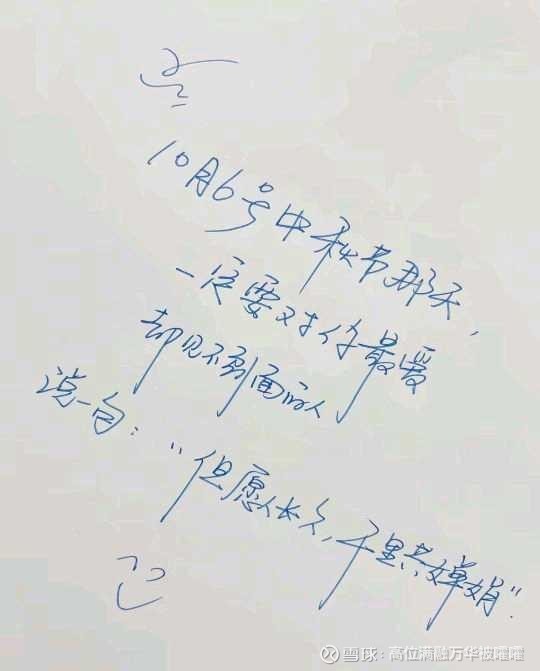 10月6号中秋节那天，
一定要对你最爱
却见不到面的人
说一句：“但愿人长久，千里共婵娟”.
雪球：高位满融万华被嚯嚯